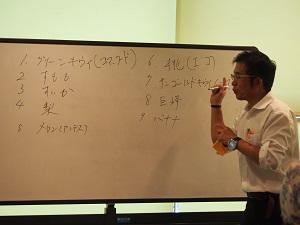 1. グリーンキウイ(
2 すもも
3 すいか
4 梨
5 メロン(アンデス)
6. 桃(
7 サンゴールドキウイ
8 巨峰
9 バナナ